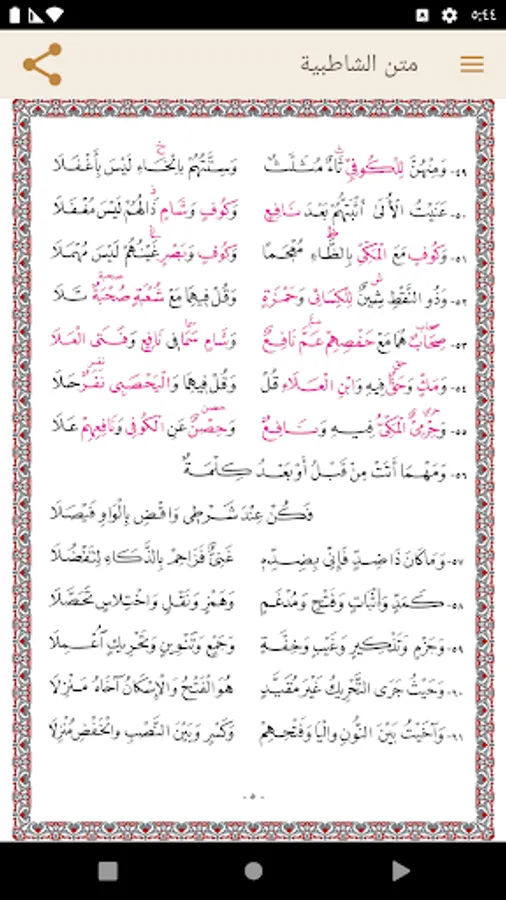 ٥:٤٤
متن الشاطبية
٤٩- وَمِنْهُنَّ لِلْكُوفِيِّ ثَاءٌ مُثَلَّثٌ وَسِتَّتُهُمْ بِالْخَاءِ لَيْسَ بِأَغْفَلَا
٥٠- عَنَيْتُ الْأُلَى أَثْبَتُّهُمْ بَعْدَ نَافِعٍ وَكُوفٍ وَشَامٍ ذَالُهُمْ لَيْسَ مُغْفَلَا
٥١- وَكُوفٍ مَعَ الْمَكِّيِّ بِالظَّاءِ مُعْجَمًا وَكُوفٍ وَبَصْرٍ غَيْنُهُمْ لَيْسَ مُهْمَلَا
٥٢- وَذُو النَّقْطِ شِينٌ لِلْكِسَائِي وَحَمْزَةٍ وَقُلْ فِيهِمَا مَعْ شُعْبَةٍ صُحْبَةٌ تَلَا
٥٣- صِحَابٌ هُمَا مَعْ حَفْصِهِمْ عَمَّ نَافِعٌ وَشَامٍ سَمَا فِي نَافِعٍ وَفَتَى الْعَلَا
٥٤- وَمَكٍّ وَحَقٌّ فِيهِ وَابْنِ الْعَلَاءِ قُلْ وَقُلْ فِيهِمَا وَالْيَحْصَبِي نَفَرٌ حَلَا
٥٥- وَحِرْمِيٌّ الْمَكِّيُّ فِيهِ وَنَافِعٌ وَحِصْنٌ عَنِ الْكُوفِي وَنَافِعِهِمْ عَلَا
٥٦- وَمَهْمَا أَتَتْ مِنْ قَبْلُ أَوْ بَعْدُ كِلْمَةٌ
فَكُنْ عِنْدَ شَرْطِي وَاقْضِ بِالْوَاوِ فَيْصَلَا
٥٧- وَمَا كَانَ ذَا ضِدٍّ فَإِنِّي بِضِدِّهِ غَنِيٌّ فَزَاحِمْ بِالذَّكَاءِ لِتَفْضُلَا
٥٨- كَمَدٍّ وَإِثْبَاتٍ وَفَتْحٍ وَمُدْغَمٍ وَهَمْزٍ وَنَقْلٍ وَاخْتِلَاسٍ تَحَصَّلَا
٥٩- وَجَزْمٍ وَتَذْكِيرٍ وَغَيْبٍ وَخِفَّةٍ وَجَمْعٍ وَتَنْوِينٍ وَتَحْرِيكٍ اعْمِلَا
٦٠- وَحَيْثُ جَرَى التَّحْرِيكُ غَيْرَ مُقَيَّدٍ هُوَ الْفَتْحُ وَالْإِسْكَانُ آخَاهُ مَنْزِلَا
٦١- وَآخَيْتُ بَيْنَ النُّونِ وَالْيَا وَفَتْحِهِمْ وَكَسْرٍ وَبَيْنَ النَّصْبِ وَالْخَفْضِ مُنْزِلَا
- ٥ -